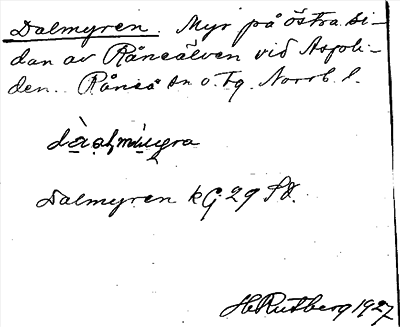 Dalmyren. Myr på östra si-
dan av Råneälven vid Aspli-
den. Råneå sn o. tg. Norrb. l.
Dalmyren kG 29 SV.
H. Rutberg 1927